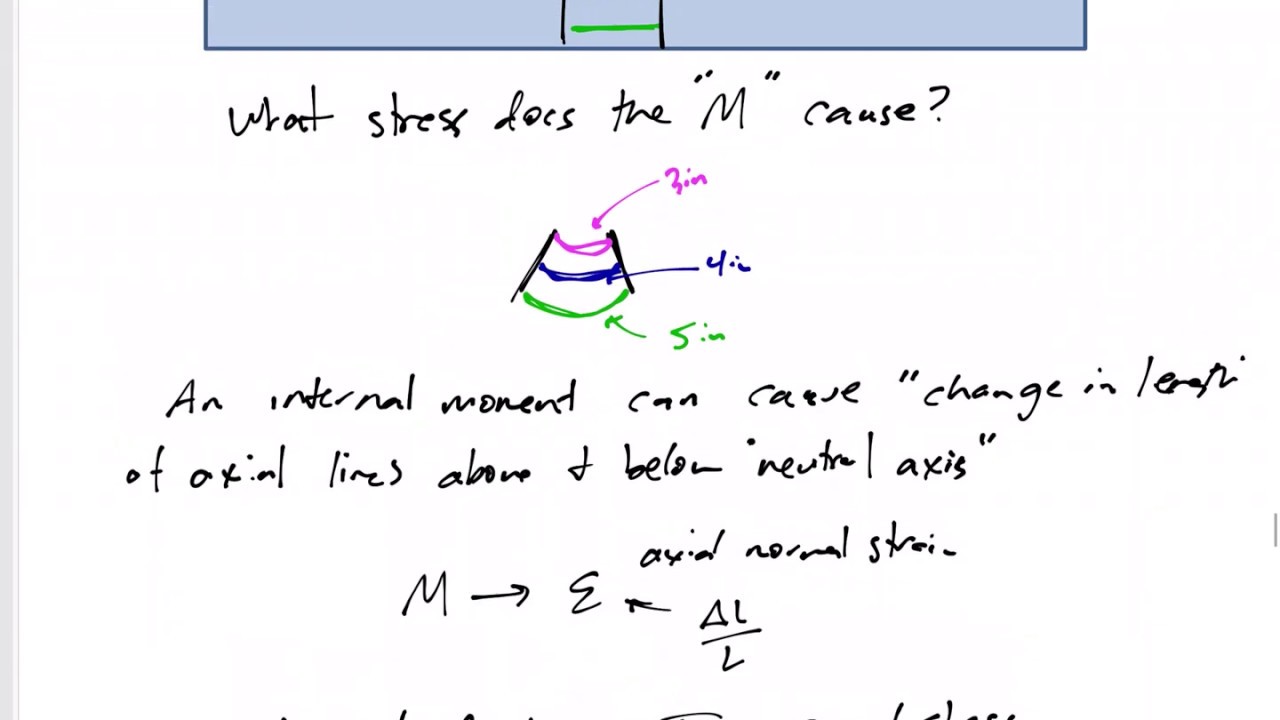 What stress does the "M" cause?
3in
4in
5in
An internal moment can cause "change in length
of axial lines above & below "neutral axis"
axial normal strain
M → ε ← ΔL
L